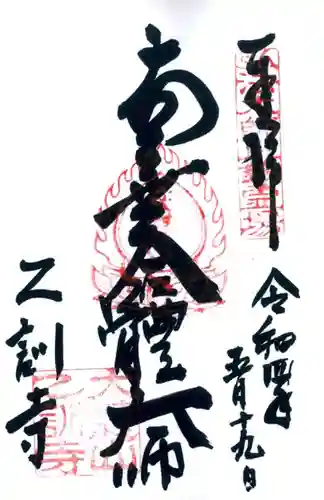 奉拝
南無合體大師
令和四年
五月十九日
乙訓寺